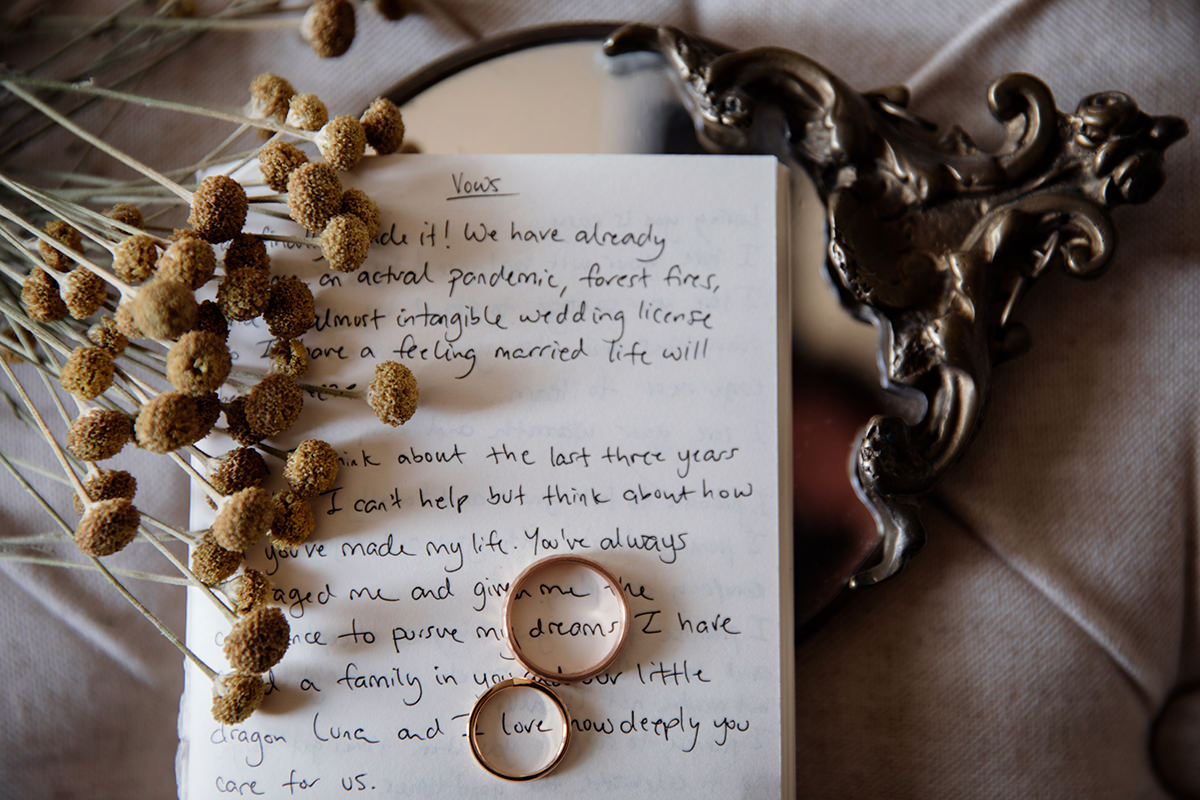 Vows
it! We have already
an actual pandemic, forest fires,
almost intangible wedding license
I have a feeling married life will
about the last three years
I can't help but think about how
you've made my life. You've always
me and given me the
to pursue my dreams. I have
a family in you and our little
dragon Luna and I love how deeply you
care for us.